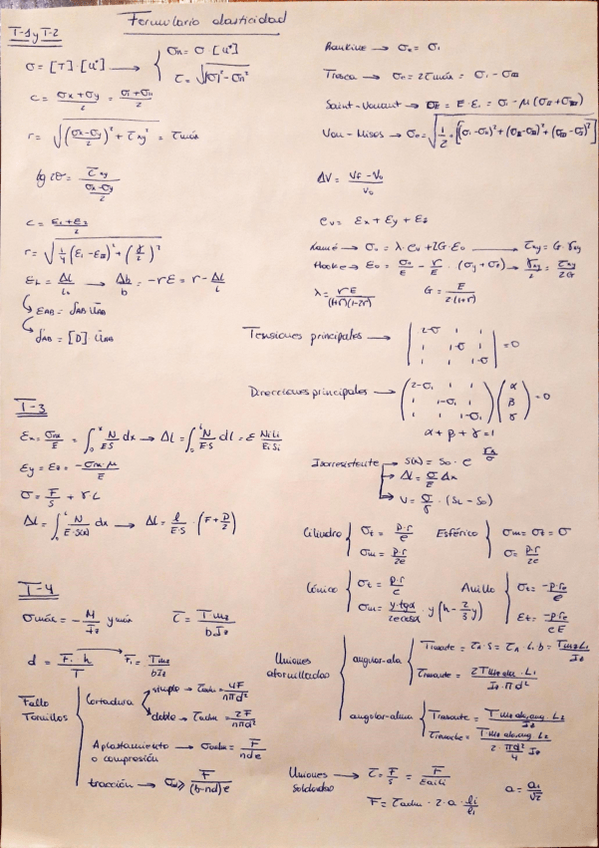 Formulario elasticidad
T-1 y T-2
σ = [T]·[u*] → { σn = σ [u*]
τ = √|σ|² - σn²
c = σx+σy / 2 = σI+σII / 2
r = √(σx-σy / 2)² + τxy² = τmáx
tg 2θ = τxy / (σx-σy / 2)
c = ε1+ε2 / 2
r = √¼(εI-εII)² + (γ/2)²
εL = ΔL/L0 → Δb/b = -rE = r-ΔL/L
εAB = δAB ūAB
δAB = [D]·ūAB
Rankine → σe = σ1
Tresca → σe = 2τmáx = σI - σIII
Saint-Venant → σE = E·E1 = σI - μ(σII+σIII)
Von-Mises → σe = √½·[(σI-σII)² + (σII-σIII)² + (σIII-σI)²]
ΔV = VF-V0 / V0
ev = Ex + Ey + Ez
Lamé → σo = λ·ev + 2G·Eo → τxy = G·γxy
Hooke → Eo = σo/E - r/E·(σy+σz) → γxy/2 = τxy/2G
λ = rE / (1+r)(1-2r)
G = E / 2(1+r)
Tensiones principales → | 2-σ 1 1 |
| 1 1-σ 1 | = 0
| 1 1 1-σ |
Direcciones principales → ( 2-σ1 1 1 ) ( α )
( 1 1-σ1 1 ) ( β ) = 0
( 1 1 1-σ1 ) ( γ )
α + β + γ = 1
T-3
Ex = σnx/E = ∫₀ˣ N/ES dx → ΔL = ∫₀ᴸ N/E·S dl = Σ NiLi/EiSi
Ey = Ez = -σnx·μ/E
σ = F/S + γL
ΔL = ∫₀ᴸ N/E·S(x) dx → ΔL = l/E·S · (F + P/2)
Isorresistente → S(x) = S0·e^(γx/σ)
→ ΔL = σ/E Δx
→ V = σ/γ · (SL - S0)
Cilindro { σt = p·r/e
σm = p·r/2e
Esférico { σm = σt = σ
σ = p·r/2e
Cónico { σt = p·r/c
σm = γ·tgα/2ecosα · y(h - 2/3 y)
Anillo { σt = -p·re/e
Et = -p·re/eE
T-4
σmáx = -M/Iz ymáx
τ = T·mz/b·Iz
d = F1·h/T → F1 = Tmz/bIz
Fallo Tornillos
Cortadura
simple → τadm = 4F/nπd²
doble → τadm = 2F/nπd²
Aplastamiento o compresión → σadm = F/nde
tracción → σad ≥ F/(b-nd)e
Uniones atornilladas
angular-ala { Trasante = τA·S = τA·L·b = TmzLi/Iz
τrasante = 2Tmz ala·L1 / Iz·πd²
angular-alma { Trasante = Tmz ala,ang L2/Iz
τrasante = Tmz ala,ang L2 / 2·πd²/4 Iz
Uniones soldadas → τ = F/S = F/Σaili
a = a1/√2
F = τadm·2·a·li/l1